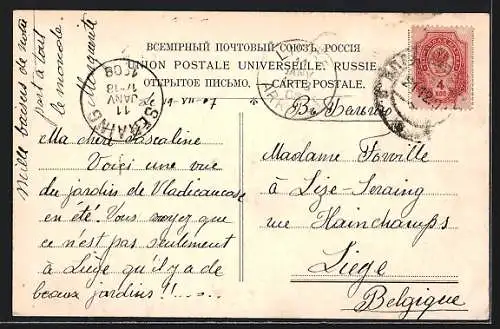 ВСЕМІРНЫЙ ПОЧТОВЫЙ СОЮЗЪ. РОССІЯ
UNION POSTALE UNIVERSELLE. RUSSIE.
ОТКРЫТОЕ ПИСЬМО. — CARTE POSTALE.
4
SERAING
1908
17-18
JANV
11
Mille baisers de nous
part à tout
le monde.
Marguerite
Ma chère Pascaline
Voici une vue
du jardins de Vladicaucase
en été! Vous voyez que
ce n'est pas seulement
à Liège qu'il y a de
beaux jardins!!
Madame
à Lize-Seraing
rue Hainchamps
Liège
Belgique